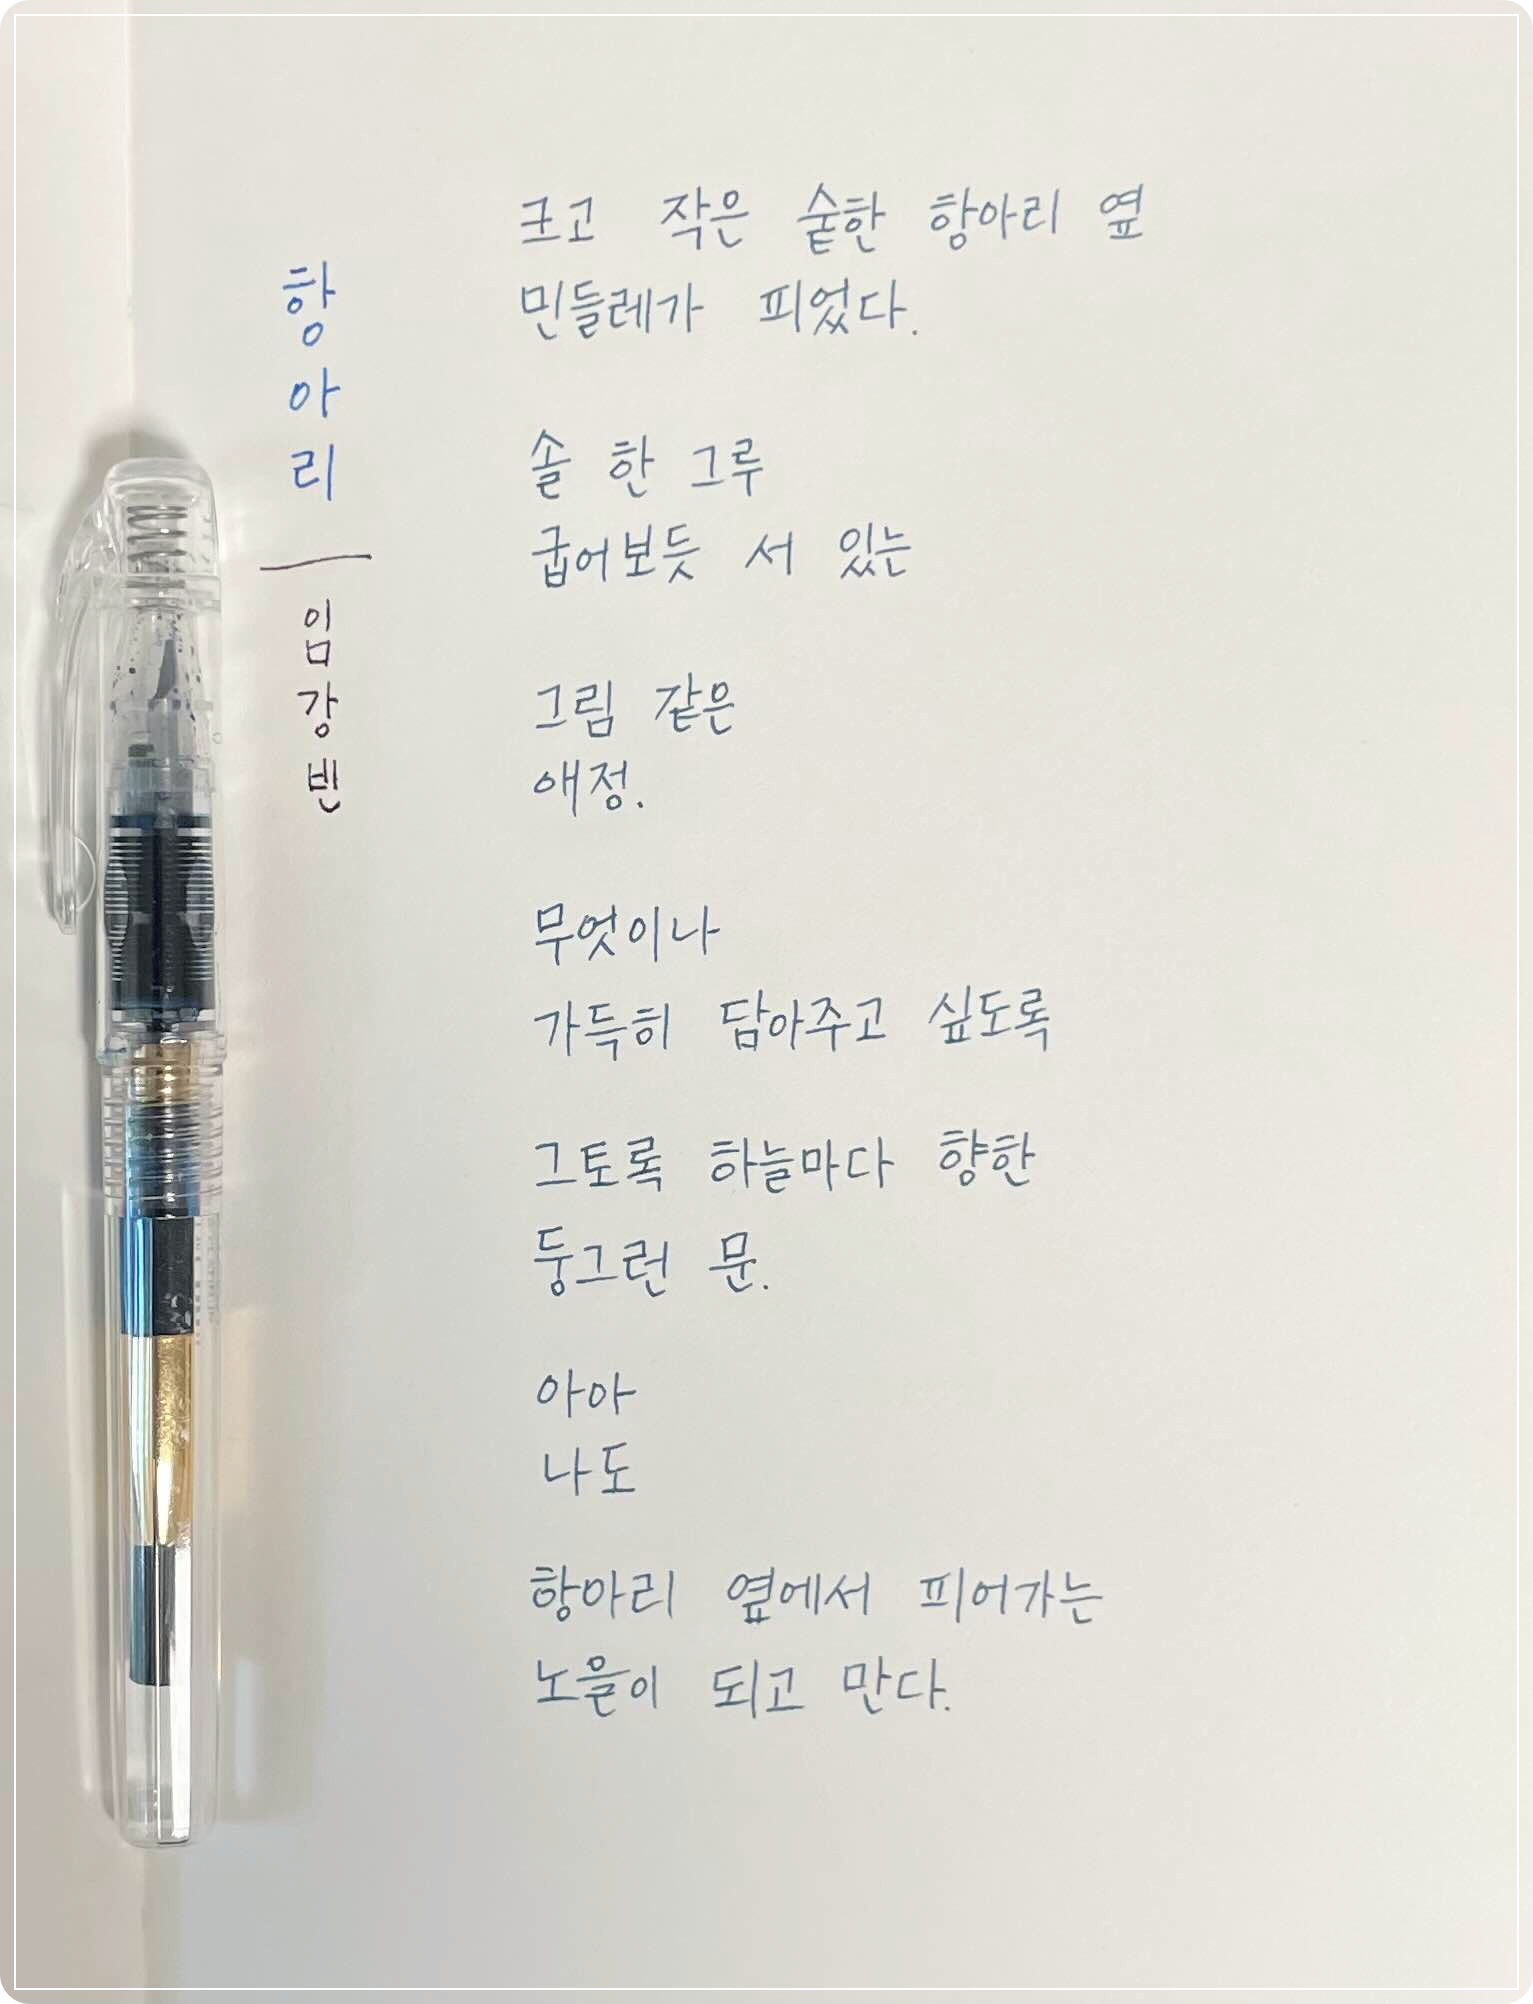 항아리
임강빈
크고 작은 숱한 항아리 옆
민들레가 피었다.
솔 한 그루
굽어보듯 서 있는
그림 같은
애정.
무엇이나
가득히 담아주고 싶도록
그토록 하늘마다 향한
둥그런 문.
아아
나도
항아리 옆에서 피어가는
노을이 되고 만다.